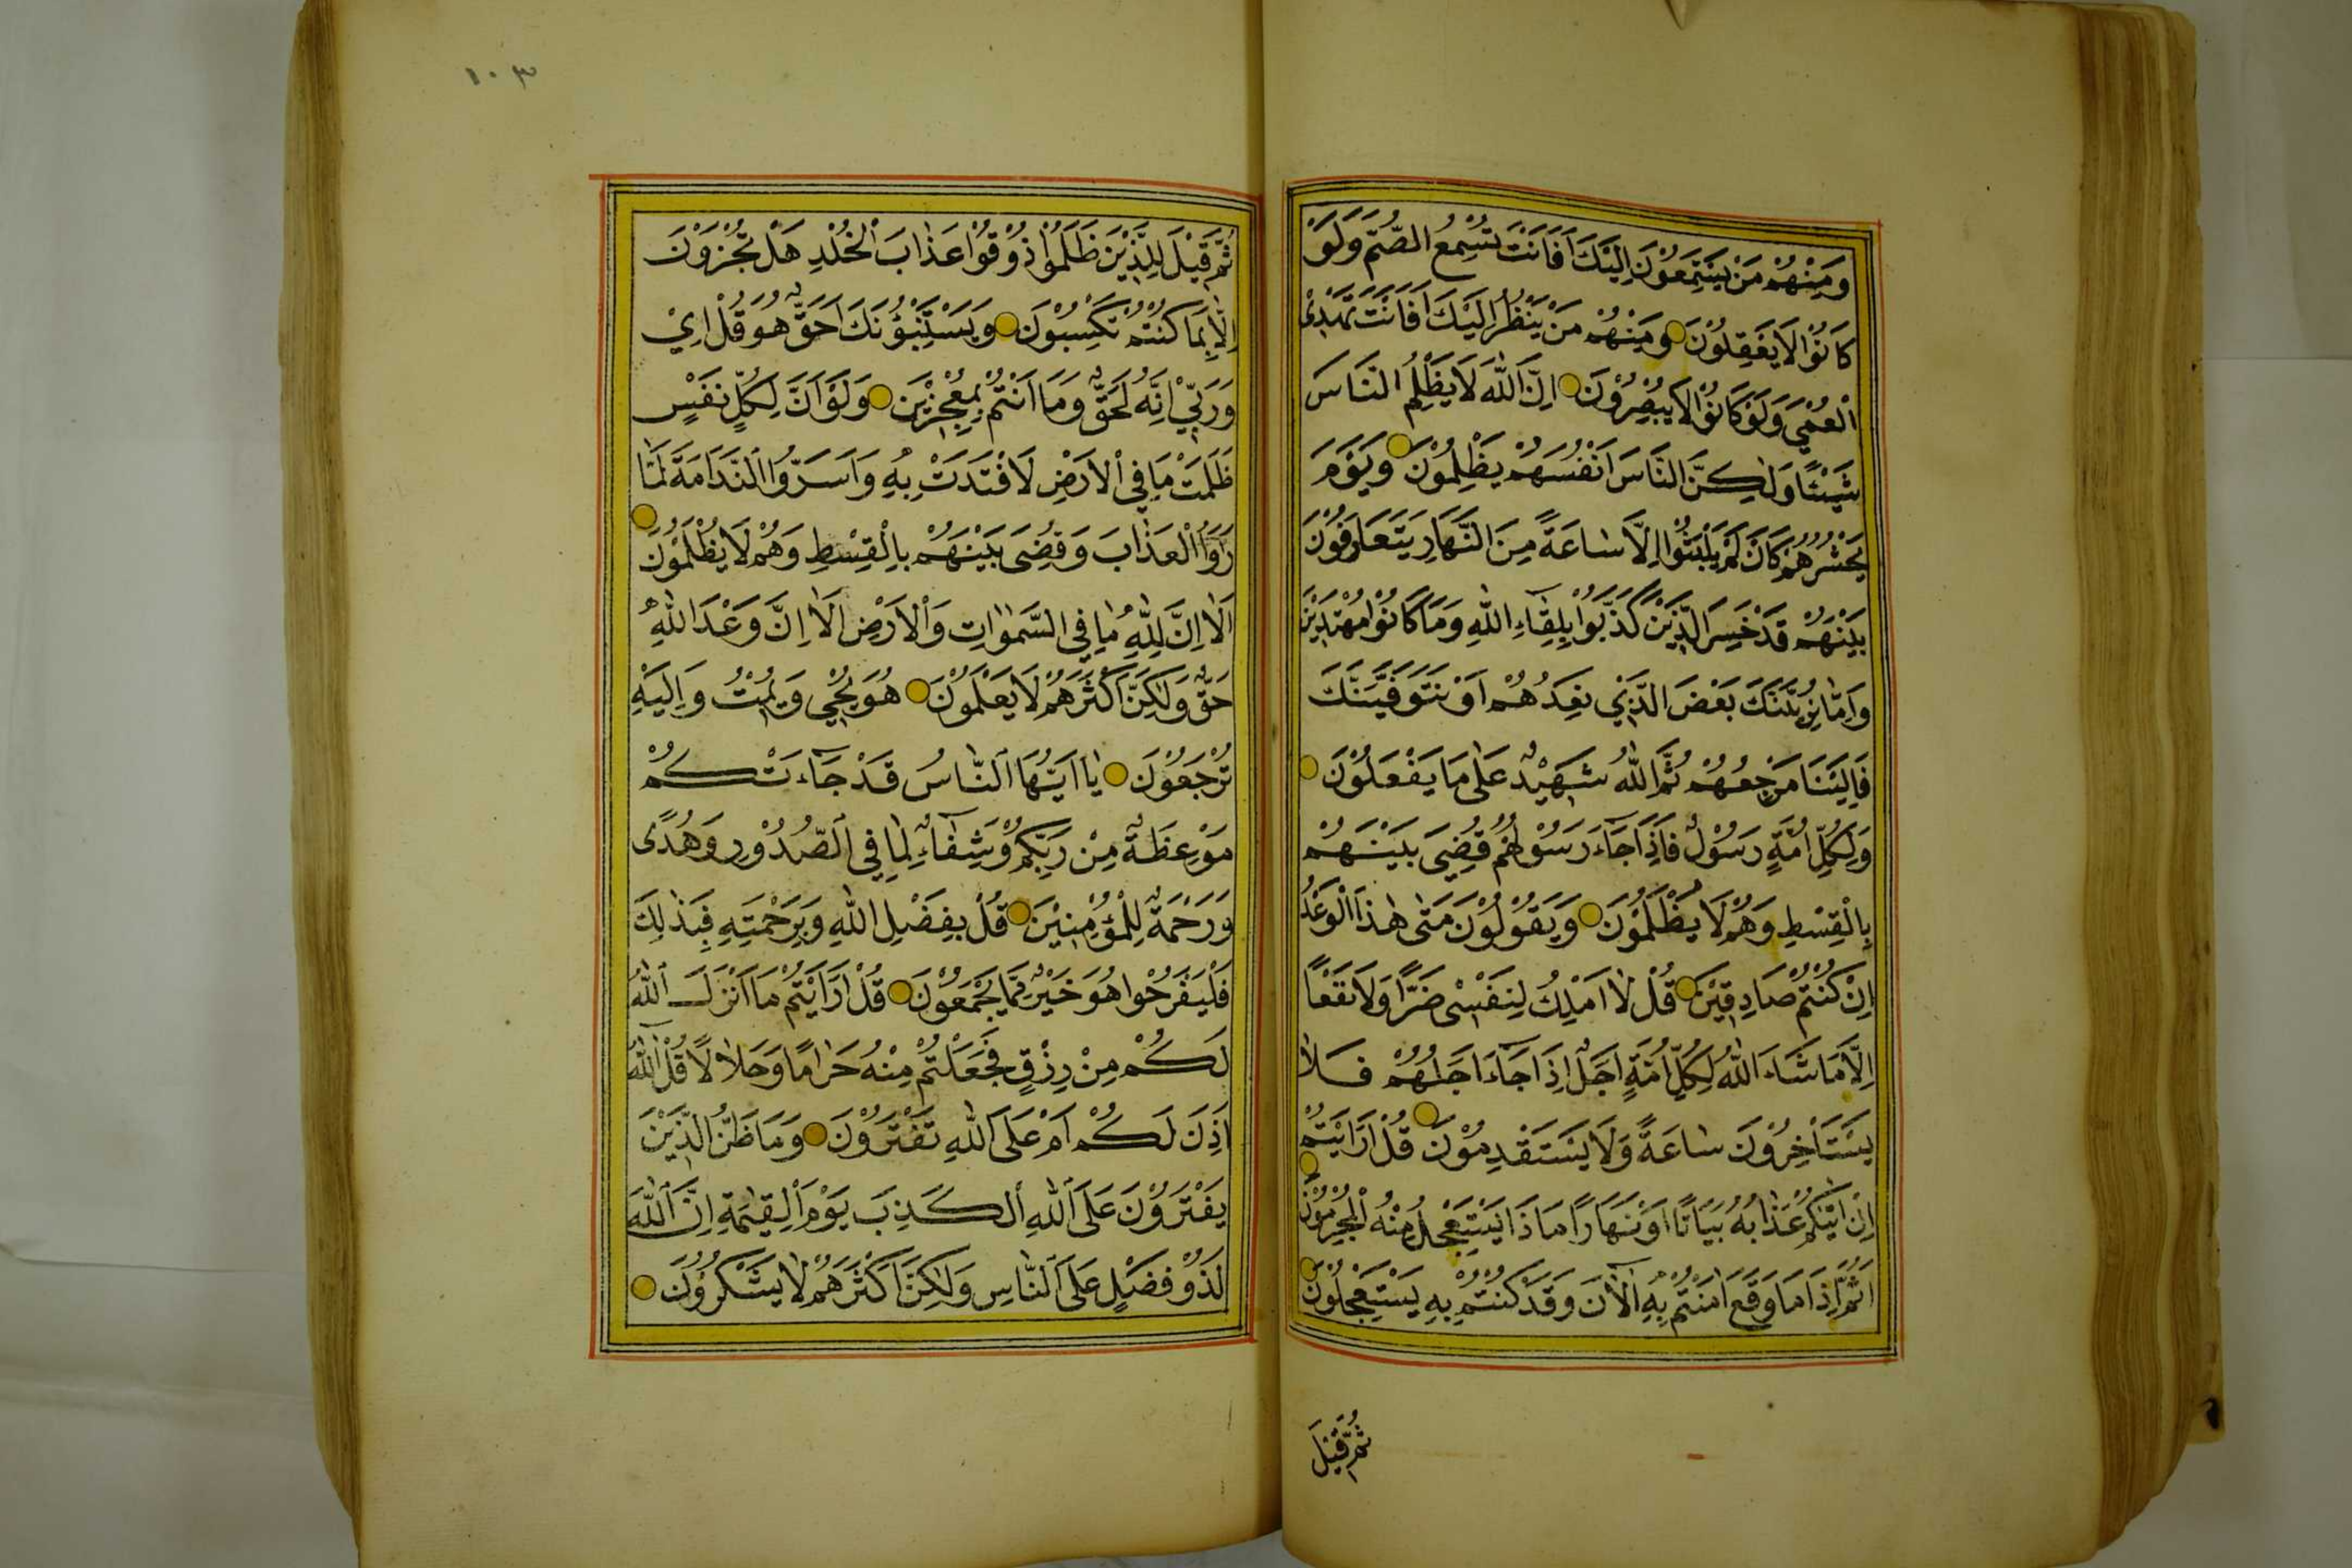 وَمِنْهُمْ مَنْ يَسْتَمِعُوْنَ اِلَيْكَ اَفَاَنْتَ تُسْمِعُ الصُّمَّ وَلَوْ
كَانُوْا لَا يَعْقِلُوْنَ وَمِنْهُمْ مَنْ يَنْظُرُ اِلَيْكَ اَفَاَنْتَ تَهْدِى
الْعُمْيَ وَلَوْ كَانُوْا لَا يُبْصِرُوْنَ اِنَّ اللّٰهَ لَا يَظْلِمُ النَّاسَ
شَيْئًا وَلٰكِنَّ النَّاسَ اَنْفُسَهُمْ يَظْلِمُوْنَ وَيَوْمَ
يَحْشُرُهُمْ كَاَنْ لَمْ يَلْبَثُوْا اِلَّا سَاعَةً مِنَ النَّهَارِ يَتَعَارَفُوْنَ
بَيْنَهُمْ قَدْ خَسِرَ الَّذِيْنَ كَذَّبُوْا بِلِقَاءِ اللّٰهِ وَمَا كَانُوْا مُهْتَدِيْنَ
وَاِمَّا نُرِيَنَّكَ بَعْضَ الَّذِيْ نَعِدُهُمْ اَوْ نَتَوَفَّيَنَّكَ
فَاِلَيْنَا مَرْجِعُهُمْ ثُمَّ اللّٰهُ شَهِيْدٌ عَلٰى مَا يَفْعَلُوْنَ
وَلِكُلِّ اُمَّةٍ رَسُوْلٌ فَاِذَا جَاءَ رَسُوْلُهُمْ قُضِيَ بَيْنَهُمْ
بِالْقِسْطِ وَهُمْ لَا يُظْلَمُوْنَ وَيَقُوْلُوْنَ مَتٰى هٰذَا الْوَعْدُ
اِنْ كُنْتُمْ صَادِقِيْنَ قُلْ لَا اَمْلِكُ لِنَفْسِىْ ضَرًّا وَلَا نَفْعًا
اِلَّا مَا شَاءَ اللّٰهُ لِكُلِّ اُمَّةٍ اَجَلٌ اِذَا جَاءَ اَجَلُهُمْ فَلَا
يَسْتَاْخِرُوْنَ سَاعَةً وَلَا يَسْتَقْدِمُوْنَ قُلْ اَرَاَيْتُمْ
اِنْ اَتٰيكُمْ عَذَابُهُ بَيَاتًا اَوْ نَهَارًا مَاذَا يَسْتَعْجِلُ مِنْهُ الْمُجْرِمُوْنَ
اَثُمَّ اِذَا مَا وَقَعَ اٰمَنْتُمْ بِهِ اٰلْاٰنَ وَقَدْ كُنْتُمْ بِهِ تَسْتَعْجِلُوْنَ
ثُمَّ قِيْلَ
١٠٣
ثُمَّ قِيْلَ لِلَّذِيْنَ ظَلَمُوْا ذُوْقُوْا عَذَابَ الْخُلْدِ هَلْ تُجْزَوْنَ
اِلَّا بِمَا كُنْتُمْ تَكْسِبُوْنَ وَيَسْتَنْبِؤُنَكَ اَحَقٌّ هُوَ قُلْ اِيْ
وَرَبِّيْ اِنَّهُ لَحَقٌّ وَمَا اَنْتُمْ بِمُعْجِزِيْنَ وَلَوْ اَنَّ لِكُلِّ نَفْسٍ
ظَلَمَتْ مَا فِي الْاَرْضِ لَافْتَدَتْ بِهِ وَاَسَرُّوا النَّدَامَةَ لَمَّا
رَاَوُا الْعَذَابَ وَقُضِىَ بَيْنَهُمْ بِالْقِسْطِ وَهُمْ لَا يُظْلَمُوْنَ
اَلَا اِنَّ لِلّٰهِ مَا فِي السَّمٰوَاتِ وَالْاَرْضِ اَلَا اِنَّ وَعْدَ اللّٰهِ
حَقٌّ وَلٰكِنَّ اَكْثَرَهُمْ لَا يَعْلَمُوْنَ هُوَ يُحْيِي وَيُمِيْتُ وَاِلَيْهِ
تُرْجَعُوْنَ يَا اَيُّهَا النَّاسُ قَدْ جَاءَتْكُمْ
مَوْعِظَةٌ مِنْ رَبِّكُمْ وَشِفَاءٌ لِمَا فِي الصُّدُوْرِ وَهُدًى
وَرَحْمَةٌ لِلْمُؤْمِنِيْنَ قُلْ بِفَضْلِ اللّٰهِ وَبِرَحْمَتِهِ فَبِذٰلِكَ
فَلْيَفْرَحُوا هُوَ خَيْرٌ مِمَّا يَجْمَعُوْنَ قُلْ اَرَاَيْتُمْ مَا اَنْزَلَ اللّٰهُ
لَكُمْ مِنْ رِزْقٍ فَجَعَلْتُمْ مِنْهُ حَرَامًا وَحَلَالًا قُلْ اٰللّٰهُ
اَذِنَ لَكُمْ اَمْ عَلَى اللّٰهِ تَفْتَرُوْنَ وَمَا ظَنُّ الَّذِيْنَ
يَفْتَرُوْنَ عَلَى اللّٰهِ الْكَذِبَ يَوْمَ الْقِيٰمَةِ اِنَّ اللّٰهَ
لَذُوْ فَضْلٍ عَلَى النَّاسِ وَلٰكِنَّ اَكْثَرَهُمْ لَا يَشْكُرُوْنَ